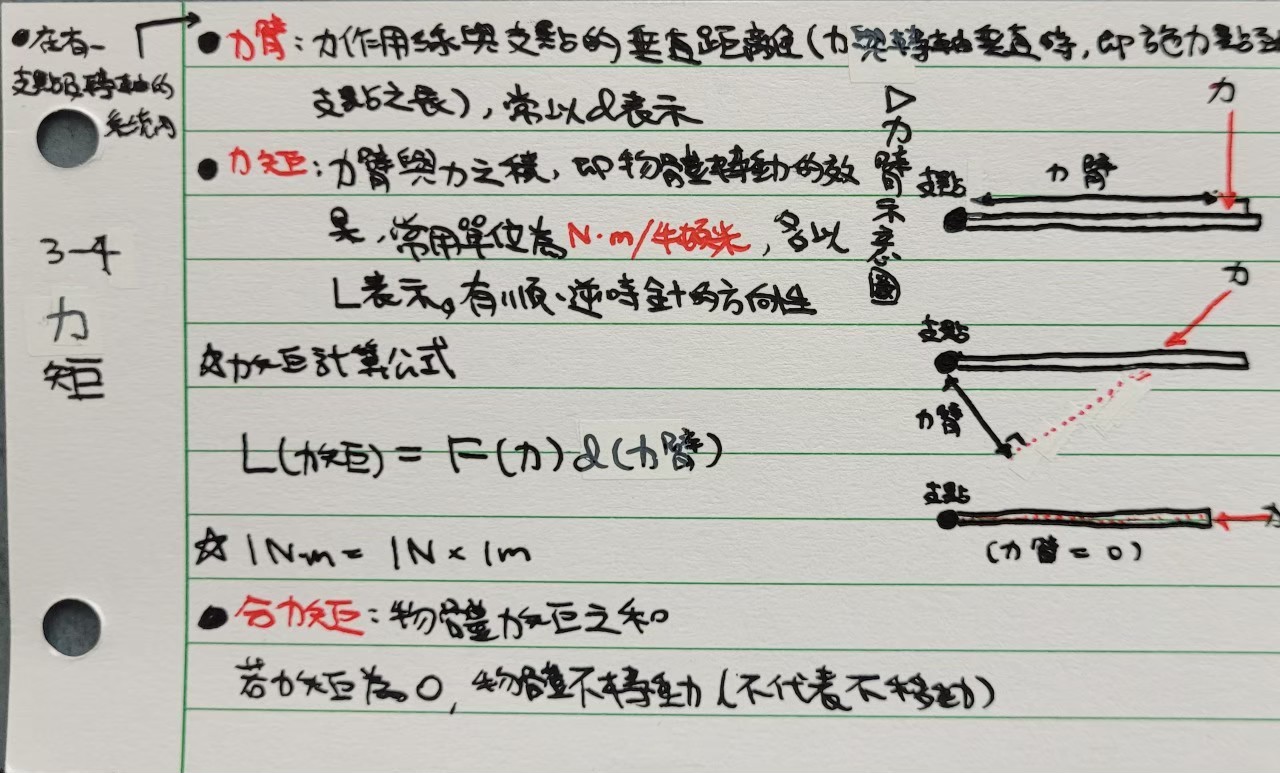 ●在有一
支點及轉軸的
系統內
3-4
力
矩
●力臂：力作用線與支點的垂直距離(力與轉軸垂直時，即施力點至
支點之長)，常以d表示
●力矩：力臂與力之積，即物體轉動的效
果，常用單位為N·m/牛頓米，多以
L表示。有順、逆時針的方向性
☆力矩計算公式
L(力矩) = F(力)d(力臂)
☆ 1Nm = 1N × 1m
●合力矩：物體力矩之和
若力矩為0，物體不轉動(不代表不移動)
▷力臂示意圖
力
支點
力臂
力
支點
力臂
支點
力
(力臂=0)